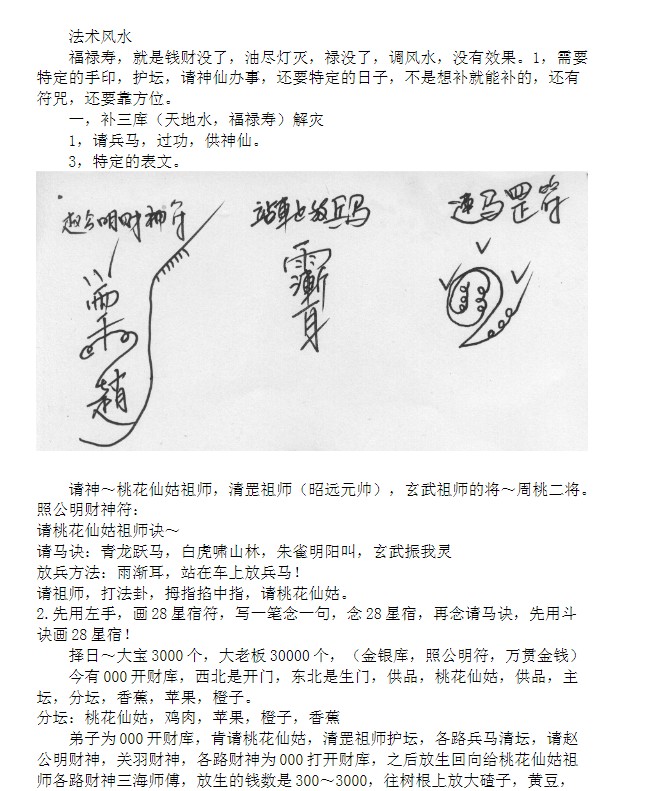 法术风水
福禄寿，就是钱财没了，油尽灯灭，禄没了，调风水，没有效果。1，需要
特定的手印，护坛，请神仙办事，还要特定的日子，不是想补就能补的，还有
符咒，还要靠方位。
一，补三库（天地水，福禄寿）解灾
1，请兵马，过功，供神仙。
3，特定的表文。
赵公明财神符
站車上放兵马
速马罡符
雨
漸
耳
趙
请神～桃花仙姑祖师，清罡祖师（昭远元帅），玄武祖师的将～周桃二将。
照公明财神符：
请桃花仙姑祖师诀～
请马诀：青龙跃马，白虎啸山林，朱雀明阳叫，玄武振我灵
放兵方法：雨渐耳，站在车上放兵马！
请祖师，打法卦，拇指掐中指，请桃花仙姑。
2.先用左手，画28星宿符，写一笔念一句，念28星宿，再念请马诀，先用斗
诀画28星宿！
择日～大宝3000个，大老板30000个，（金银库，照公明符，万贯金钱）
今有000开财库，西北是开门，东北是生门，供品，桃花仙姑，供品，主
坛，分坛，香蕉，苹果，橙子。
分坛：桃花仙姑，鸡肉，苹果，橙子，香蕉
弟子为000开财库，肯请桃花仙姑，清罡祖师护坛，各路兵马清坛，请赵
公明财神，关羽财神，各路财神为000打开财库，之后放生回向给桃花仙姑祖
师各路财神三海师傅，放生的钱数是300～3000，往树根上放大碴子，黄豆，